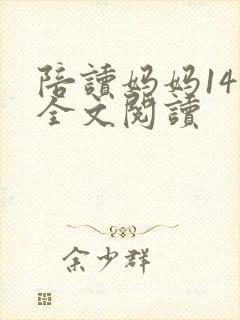 陪讀妈妈14
全文閱讀
余少群